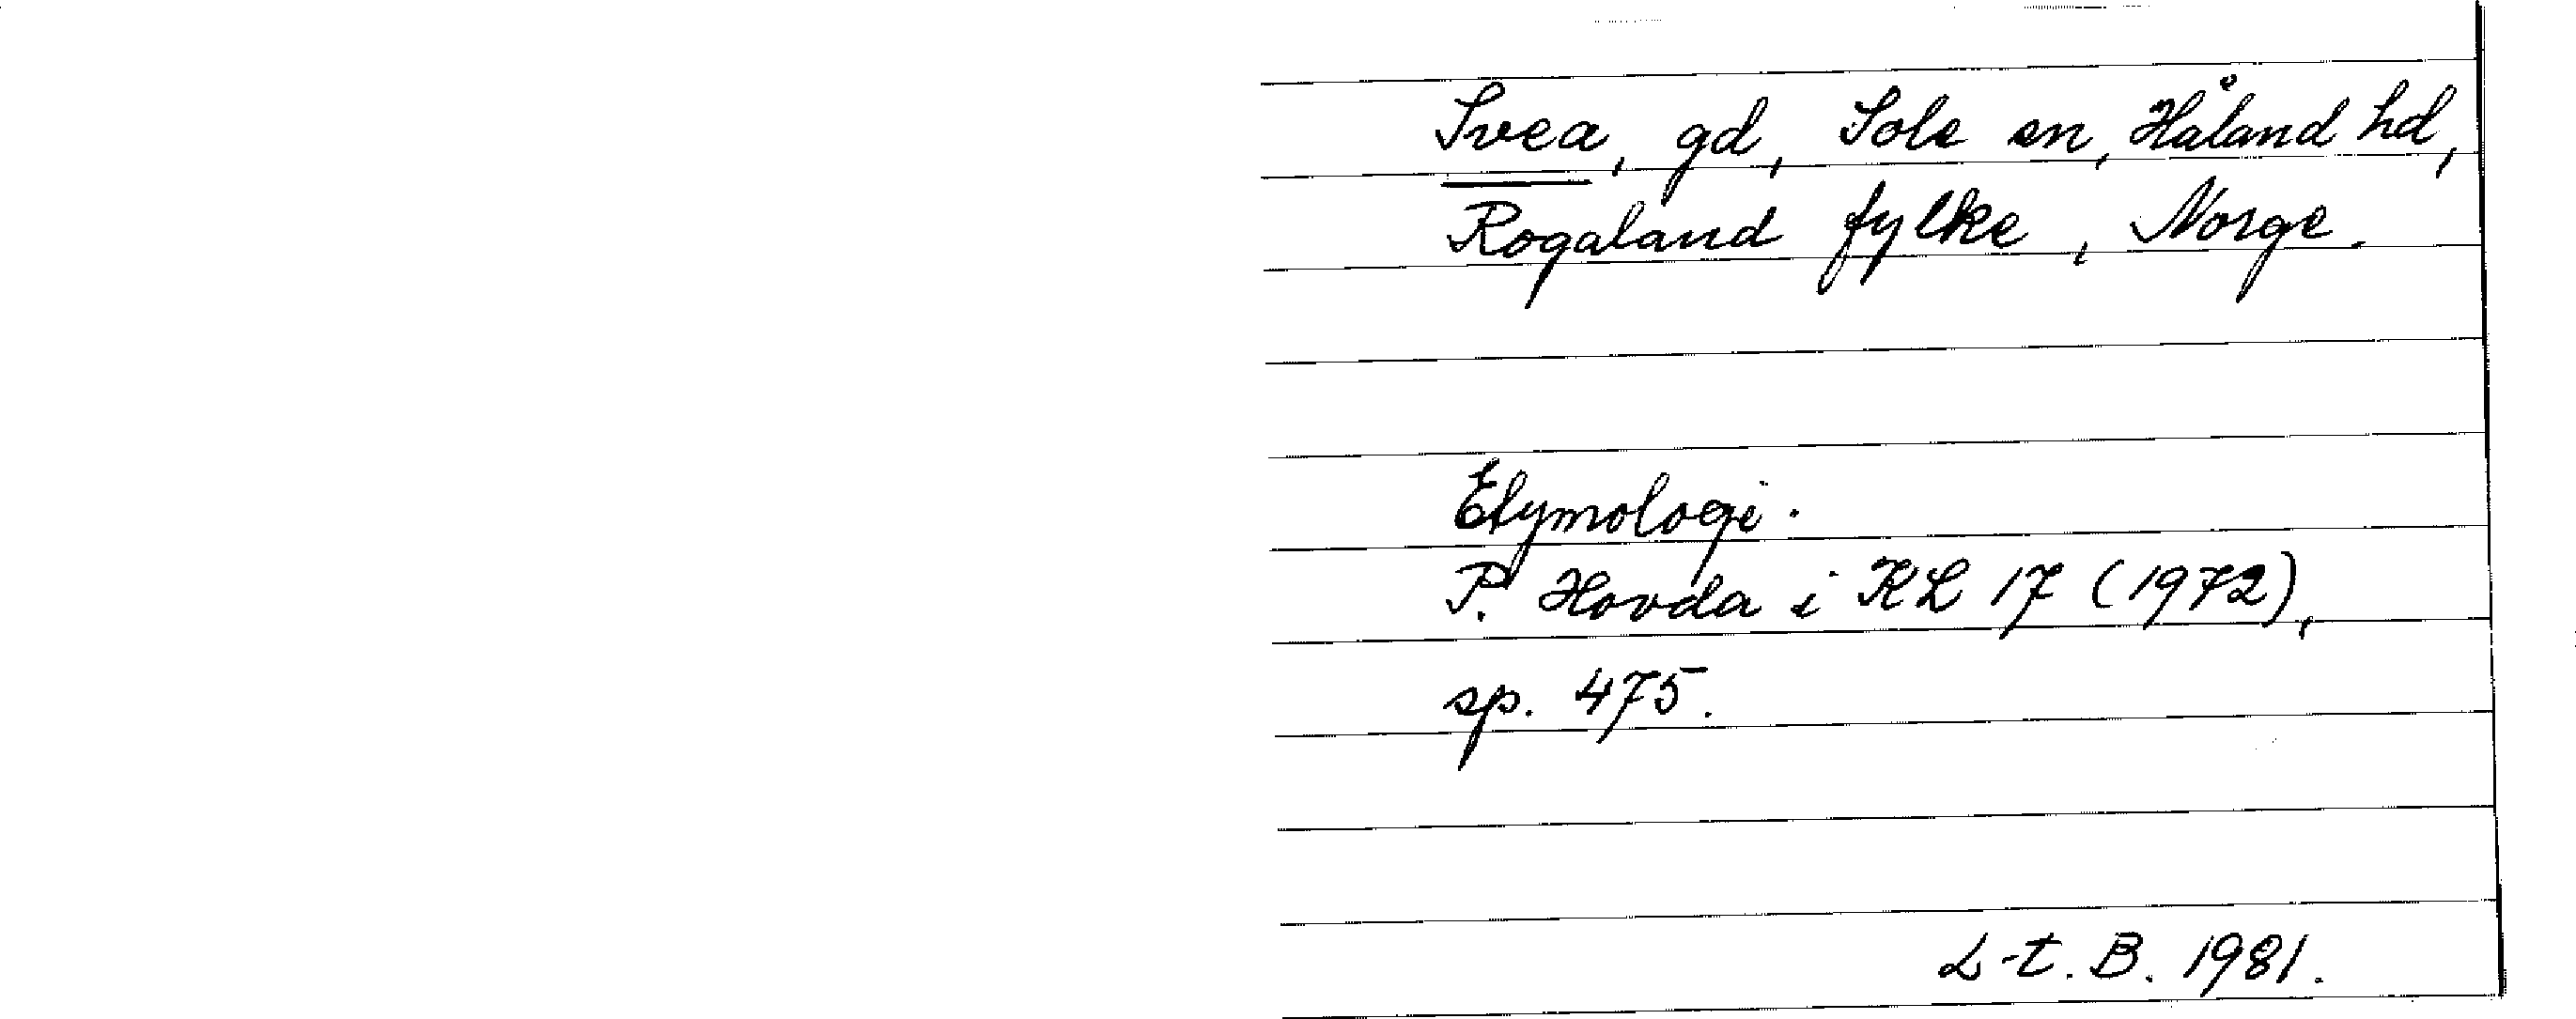 Svea, gd, Sole sn, Håland hd,
Rogaland fylke, Norge.
Etymologi.
P. Hovda i KL 17 (1972),
sp. 475.
L-t. B. 1981.